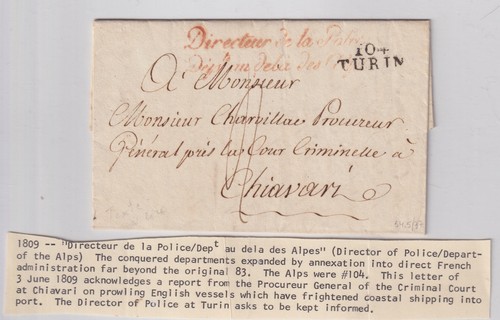 Directeur de la Police
104
TURIN
A Monsieur
Monsieur Charvilhac Procureur
Général près la Cour Criminelle à
Chiavari
1809 -- "Directeur de la Police/Dept au dela des Alpes" (Director of Police/Depart-
of the Alps) The conquered departments expanded by annexation into direct French
administration far beyond the original 83. The Alps were #104. This letter of
3 June 1809 acknowledges a report from the Procureur General of the Criminal Court
at Chiavari on prowling English vessels which have frightened coastal shipping into
port. The Director of Police at Turin asks to be kept informed.